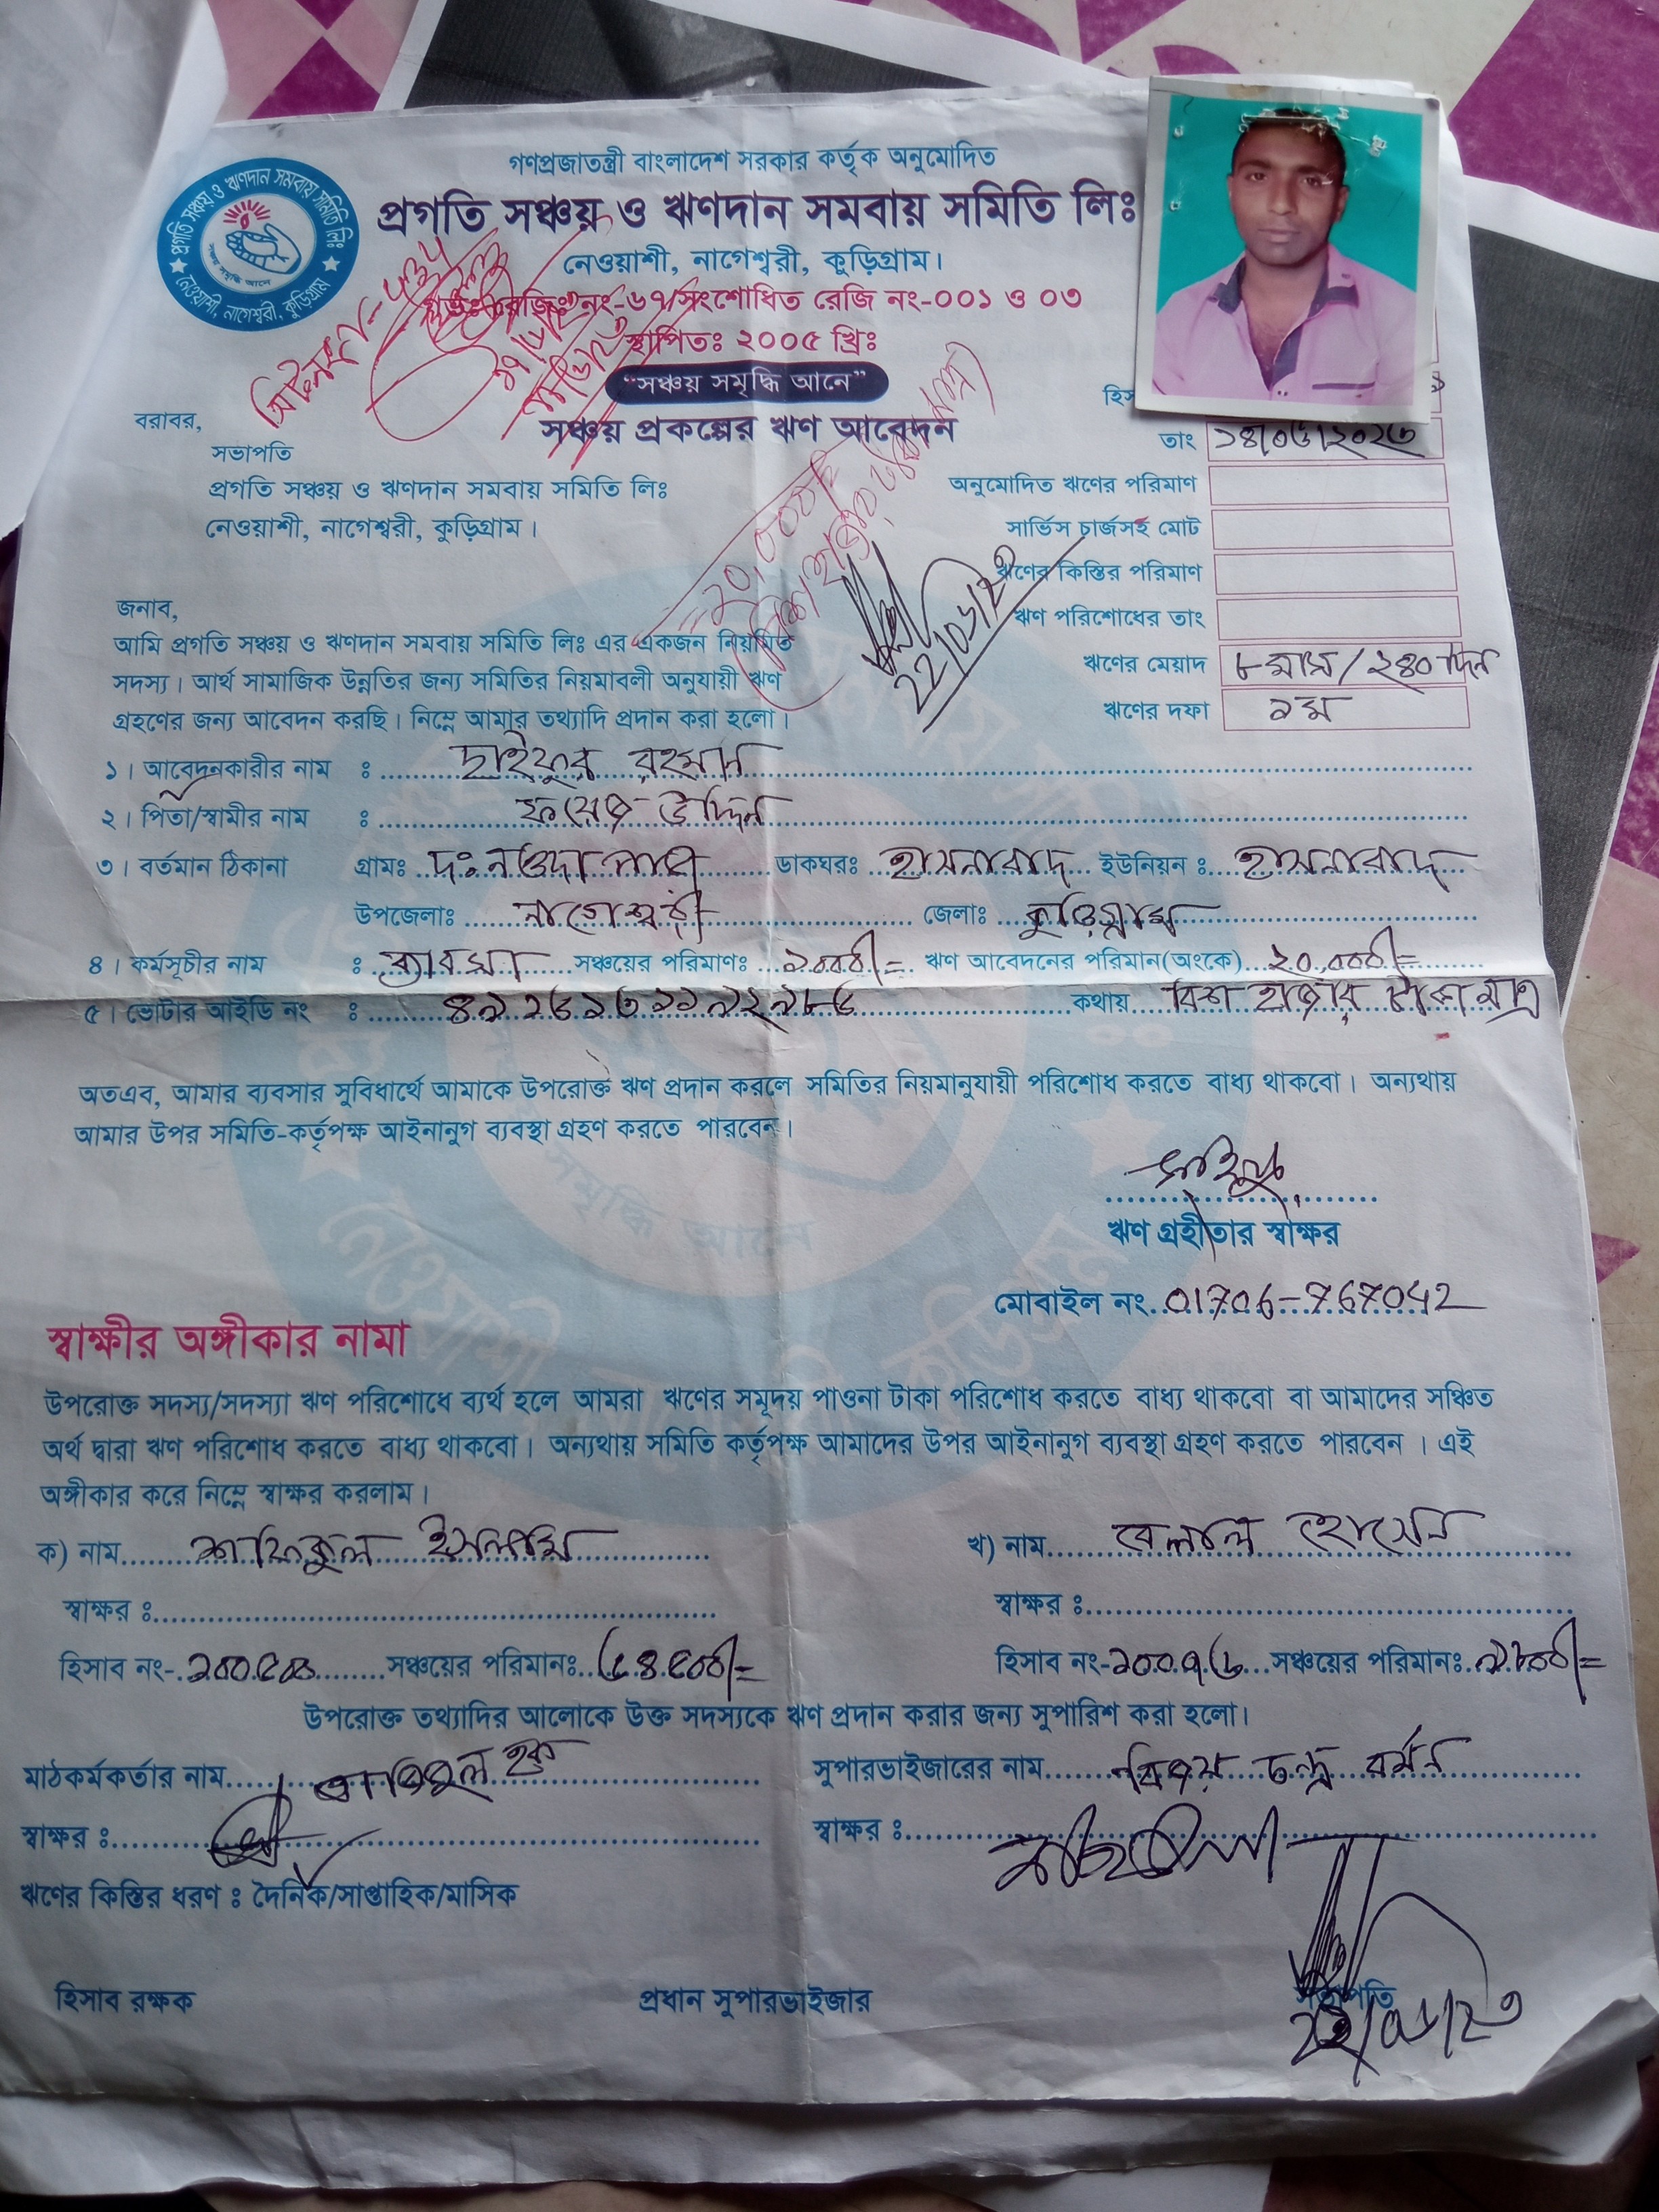 গণপ্রজাতন্ত্রী বাংলাদেশ সরকার কর্তৃক অনুমোদিত
প্রগতি সঞ্চয় ও ঋণদান সমবায় সমিতি লিঃ
নেওয়াশী, নাগেশ্বরী, কুড়িগ্রাম।
রেজিঃ নং-৬৭/সংশোধিত রেজি নং-০০১ ও ০৩
স্থাপিতঃ ২০০৫ খ্রিঃ
"সঞ্চয় সমৃদ্ধি আনে"
সঞ্চয় প্রকল্পের ঋণ আবেদন
প্রগতি সঞ্চয় ও ঋণদান সমবায় সমিতি লিঃ
নেওয়াশী, নাগেশ্বরী, কুড়িগ্রাম
সঞ্চয় সমৃদ্ধি আনে
বরাবর,
সভাপতি
প্রগতি সঞ্চয় ও ঋণদান সমবায় সমিতি লিঃ
নেওয়াশী, নাগেশ্বরী, কুড়িগ্রাম।
তাং ১৪/০৬/২০২৩
অনুমোদিত ঋণের পরিমাণ
সার্ভিস চার্জসহ মোট
ঋণের কিস্তির পরিমাণ
ঋণ পরিশোধের তাং
ঋণের মেয়াদ ৮ মাস/২৪০ দিন
ঋণের দফা ১ম
=২০,০০০/=
জনাব,
আমি প্রগতি সঞ্চয় ও ঋণদান সমবায় সমিতি লিঃ এর একজন নিয়মিত
সদস্য। আর্থ সামাজিক উন্নতির জন্য সমিতির নিয়মাবলী অনুযায়ী ঋণ
গ্রহণের জন্য আবেদন করছি। নিম্নে আমার তথ্যাদি প্রদান করা হলো।
১। আবেদনকারীর নাম : ছাইফুর রহমান
২। পিতা/স্বামীর নাম : ফয়েজ উদ্দিন
৩। বর্তমান ঠিকানা গ্রামঃ দঃ নওদাপাড়া ডাকঘরঃ হাসনাবাদ ইউনিয়ন : হাসনাবাদ
উপজেলাঃ নাগেশ্বরী জেলাঃ কুড়িগ্রাম
৪। কর্মসূচীর নাম : ব্যাবসা সঞ্চয়ের পরিমাণঃ ১০০০/= ঋণ আবেদনের পরিমান(অংকে) ২০,০০০/=
৫। ভোটার আইডি নং : কথায় বিশ হাজার টাকা মাত্র
অতএব, আমার ব্যবসার সুবিধার্থে আমাকে উপরোক্ত ঋণ প্রদান করলে সমিতির নিয়মানুযায়ী পরিশোধ করতে বাধ্য থাকবো। অন্যথায়
আমার উপর সমিতি-কর্তৃপক্ষ আইনানুগ ব্যবস্থা গ্রহণ করতে পারবেন।
ঋণ গ্রহীতার স্বাক্ষর
মোবাইল নং. 01706-767042
স্বাক্ষীর অঙ্গীকার নামা
উপরোক্ত সদস্য/সদস্যা ঋণ পরিশোধে ব্যর্থ হলে আমরা ঋণের সমূদয় পাওনা টাকা পরিশোধ করতে বাধ্য থাকবো বা আমাদের সঞ্চিত
অর্থ দ্বারা ঋণ পরিশোধ করতে বাধ্য থাকবো। অন্যথায় সমিতি কর্তৃপক্ষ আমাদের উপর আইনানুগ ব্যবস্থা গ্রহণ করতে পারবেন । এই
অঙ্গীকার করে নিম্নে স্বাক্ষর করলাম।
ক) নাম শফিকুল ইসলাম খ) নাম বেলাল হোসেন
স্বাক্ষর : স্বাক্ষর :
হিসাব নং- সঞ্চয়ের পরিমানঃ ৬৪৫০০/= হিসাব নং-১০০৭৬ সঞ্চয়ের পরিমানঃ ৯৮০০/=
উপরোক্ত তথ্যাদির আলোকে উক্ত সদস্যকে ঋণ প্রদান করার জন্য সুপারিশ করা হলো।
মাঠকর্মকর্তার নাম হক সুপারভাইজারের নাম বিজয় চন্দ্র বর্মন
স্বাক্ষর : স্বাক্ষর :
ঋণের কিস্তির ধরণ : দৈনিক/সাপ্তাহিক/মাসিক
হিসাব রক্ষক প্রধান সুপারভাইজার সভাপতি